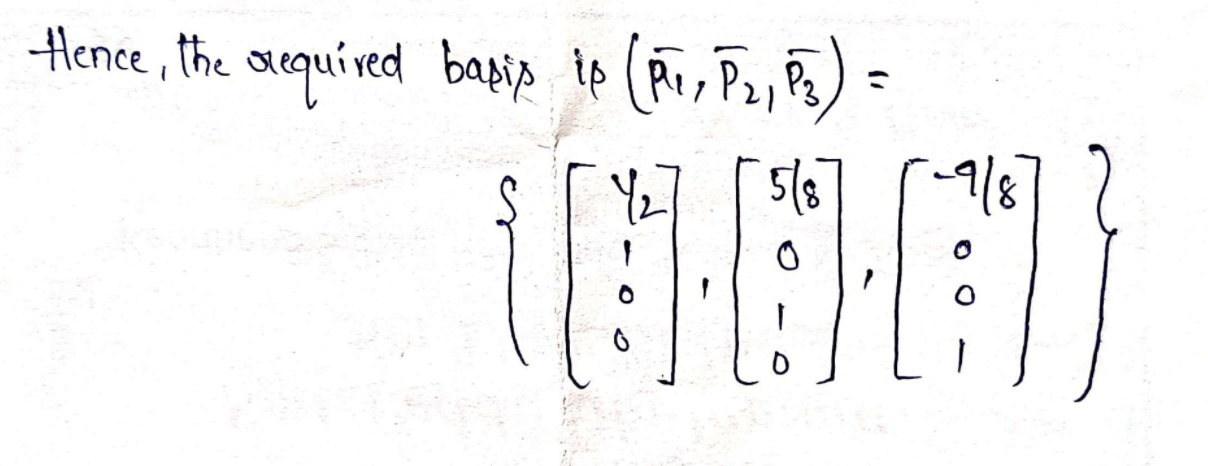 Hence, the required basis is (p̄₁, p̄₂, p̄₃) =
{ [1/2 1 0 0], [5/8 0 1 0], [-9/8 0 0 1] }